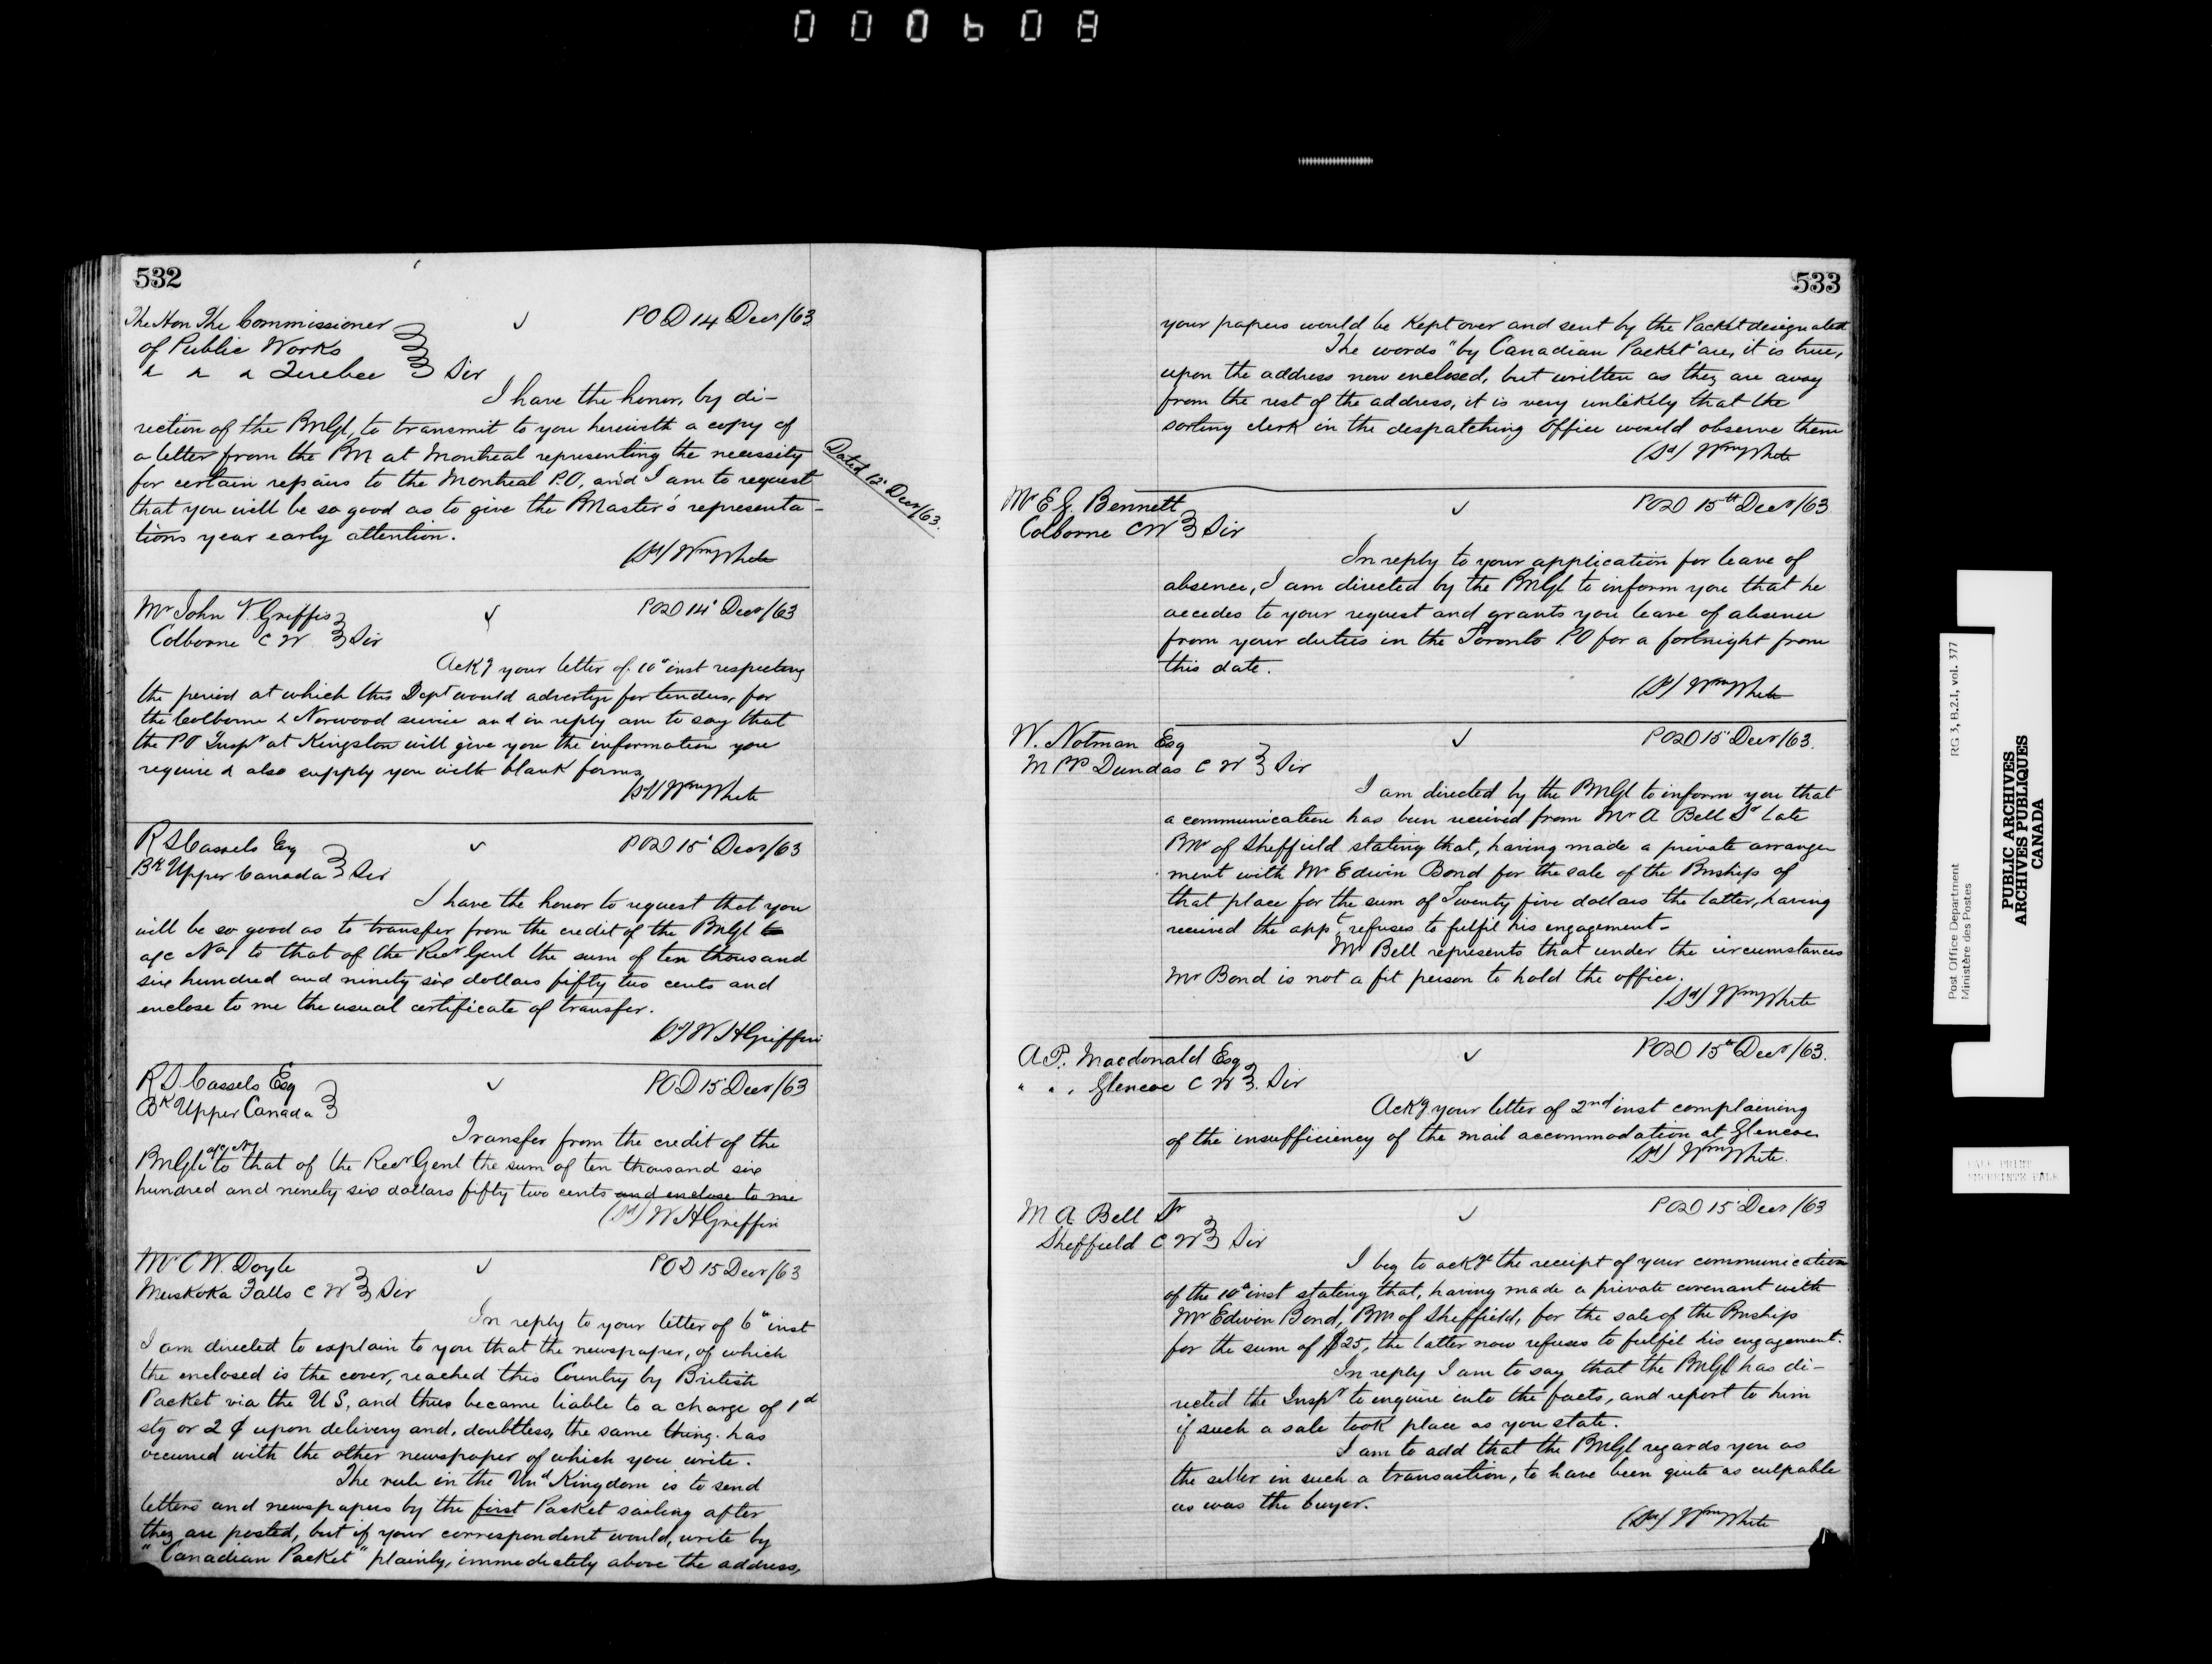 000608
532
The Hon The Commissioner
of Public Works
& & & Quebec Sir
POD 14 Decr/63
I have the honor, by di-
rection of the PMGl, to transmit to you herewith a copy of
a letter from the PM at Montreal representing the necessity
for certain repairs to the Montreal P.O, and I am to request
that you will be so good as to give the PMaster's representa-
tions your early attention.
Dated 12 Decr/63.
(Sd) Wm White
Mr John V. Griffis
Colborne C W Sir
POD 14 Decr/63
Ackg your letter of 10th inst respecting
the period at which this Dept would advertize for tenders, for
the Colborne & Norwood service and in reply am to say that
the PO Inspr at Kingston will give you the information you
require & also supply you with blank forms
(Sd) Wm White
R S Cassels Esq
Bk Upper Canada Sir
POD 15 Decr/63
I have the honor to request that you
will be so good as to transfer from the credit of the PMGl to
a/c No 1 to that of the Recr Genl the sum of ten thousand
six hundred and ninety six dollars fifty two cents and
enclose to me the usual certificate of transfer.
(Sd) W H Griffin
R S. Cassels Esq
Bk Upper Canada
POD 15 Decr/63
Transfer from the credit of the
PMGl a/c No 1 to that of the Recr Genl the sum of ten thousand six
hundred and ninety six dollars fifty two cents and enclose to me
(Sd) W H Griffin
Mr C W. Doyle
Muskoka Falls C W Sir
POD 15 Decr/63
In reply to your letter of 6th inst
I am directed to explain to you that the newspaper, of which
the enclosed is the cover, reached this Country by British
Packet via the U S, and thus became liable to a charge of 1d
stg or 2 ¢ upon delivery and, doubtless, the same thing has
occurred with the other newspaper of which you write.
The rule in the Und Kingdom is to send
letters and newspapers by the first Packet sailing after
they are posted, but if your correspondent would, write by
"Canadian Packet" plainly, immediately above the address,
533
your papers would be kept over and sent by the Packet designated
The words "by Canadian Packet" are, it is true,
upon the address now enclosed, but written as they are away
from the rest of the address, it is very unlikely that the
sorting clerk in the despatching Office would observe them
(Sd) Wm White
Mr E J. Bennett
Colborne CW Sir
POD 15th Decr/63
In reply to your application for leave of
absence, I am directed by the PMGl to inform you that he
accedes to your request and grants you leave of absence
from your duties in the Toronto P.O for a fortnight from
this date.
(Sd) Wm White
W. Notman Esq
M PP Dundas C W Sir
POD 15 Decr/63.
I am directed by the PMGl to inform you that
a communication has been received from Mr A Bell Sr late
PMr of Sheffield stating that, having made a private arrange
ment with Mr Edwin Bond for the sale of the Pmship of
that place for the sum of Twenty five dollars the latter, having
received the appt, refuses to fulfil his engagement-
Mr Bell represents that under the circumstances
Mr Bond is not a fit person to hold the office.
(Sd) Wm White
A P. Macdonald Esq
" " " Glencoe C W Sir
POD 15th Decr/63.
Ackg your letter of 2nd inst complaining
of the insufficiency of the mail accommodation at Glencoe
(Sd) Wm White.
M A Bell Sr
Sheffield C W Sir
POD 15 Decr/63
I beg to ackge the receipt of your communication
of the 10th inst stating that, having made a private covenant with
Mr Edwin Bond, PMr of Sheffield, for the sale of the Pmship
for the sum of $25, the latter now refuses to fulfil his engagement.
In reply I am to say that the PMGl has di-
rected the Inspr to enquire into the facts, and report to him
if such a sale took place as you state.
I am to add that the PMGl regards you as
the seller in such a transaction, to have been quite as culpable
as was the buyer.
(Sd) Wm White
Post Office Department RG 3, B.2.1, vol. 377
Ministère des Postes
PUBLIC ARCHIVES
ARCHIVES PUBLIQUES
CANADA